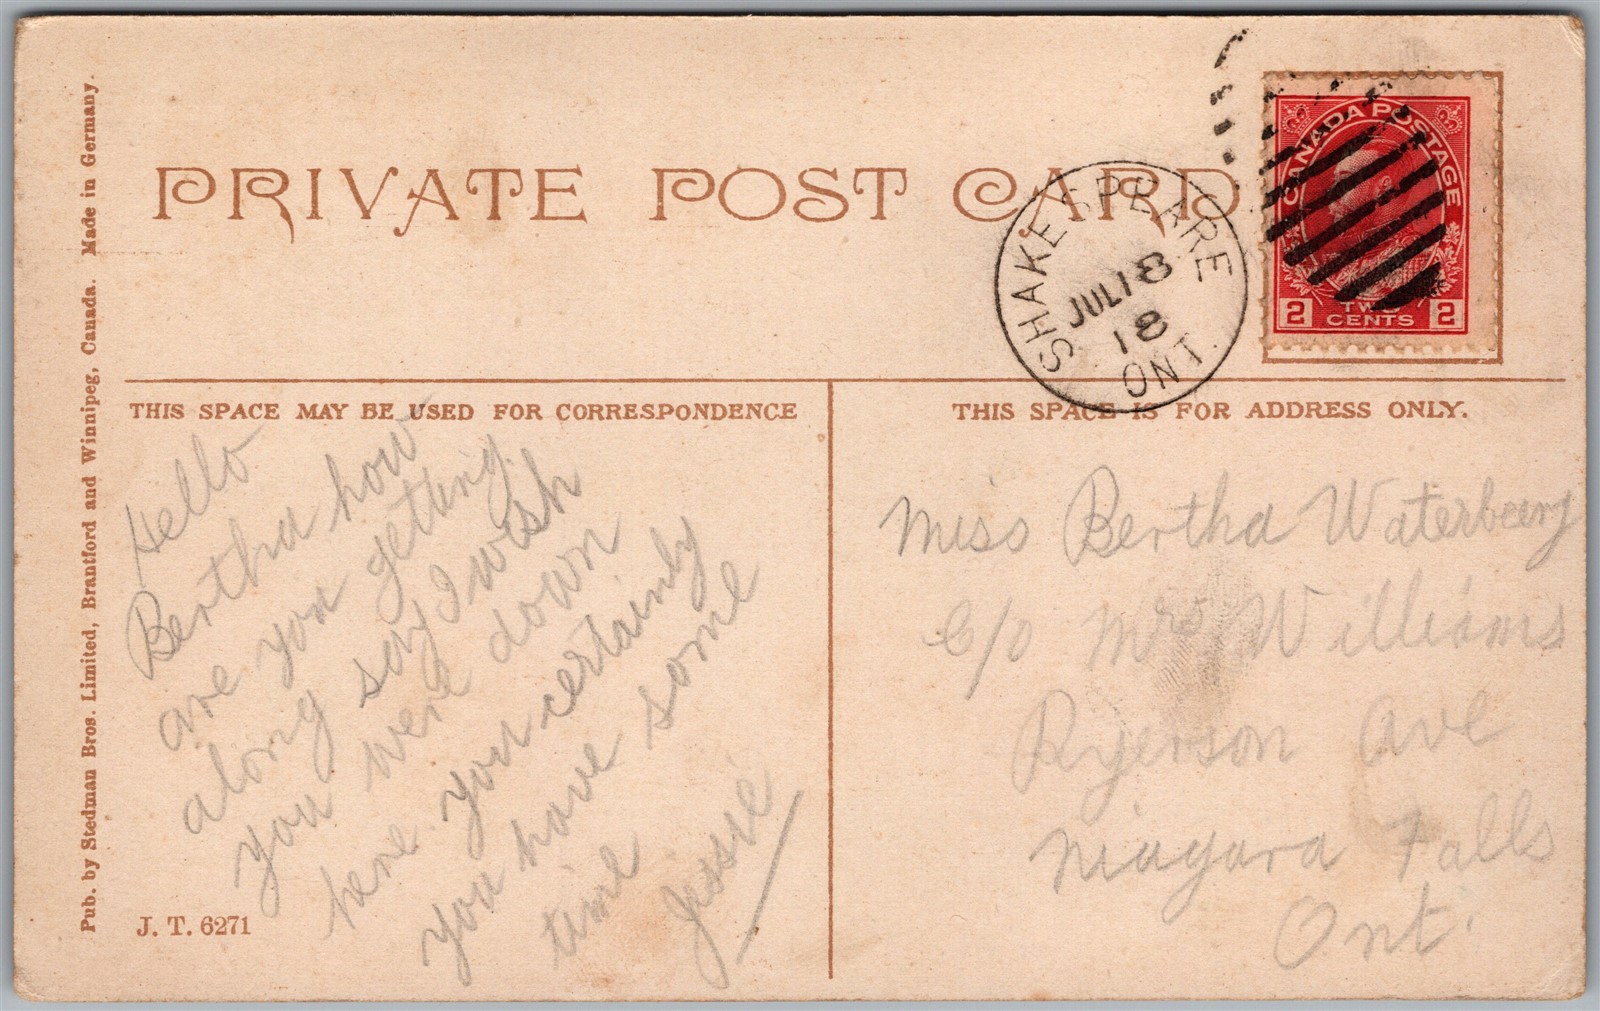 PRIVATE POST CARD
CANADA POSTAGE
2 TWO CENTS 2
SHAKESPEARE
JUL 18
18
ONT.
THIS SPACE MAY BE USED FOR CORRESPONDENCE
THIS SPACE IS FOR ADDRESS ONLY.
Hello
Bertha how
are you getting
along say I wish
you were down
here. You certainly
you have some
time
Jessie
Miss Bertha
c/o Mrs Williams
Ryerson Ave
Niagara Falls
Ont.
J. T. 6271
Pub. by Stedman Bros. Limited, Brantford and Winnipeg, Canada. Made in Germany.